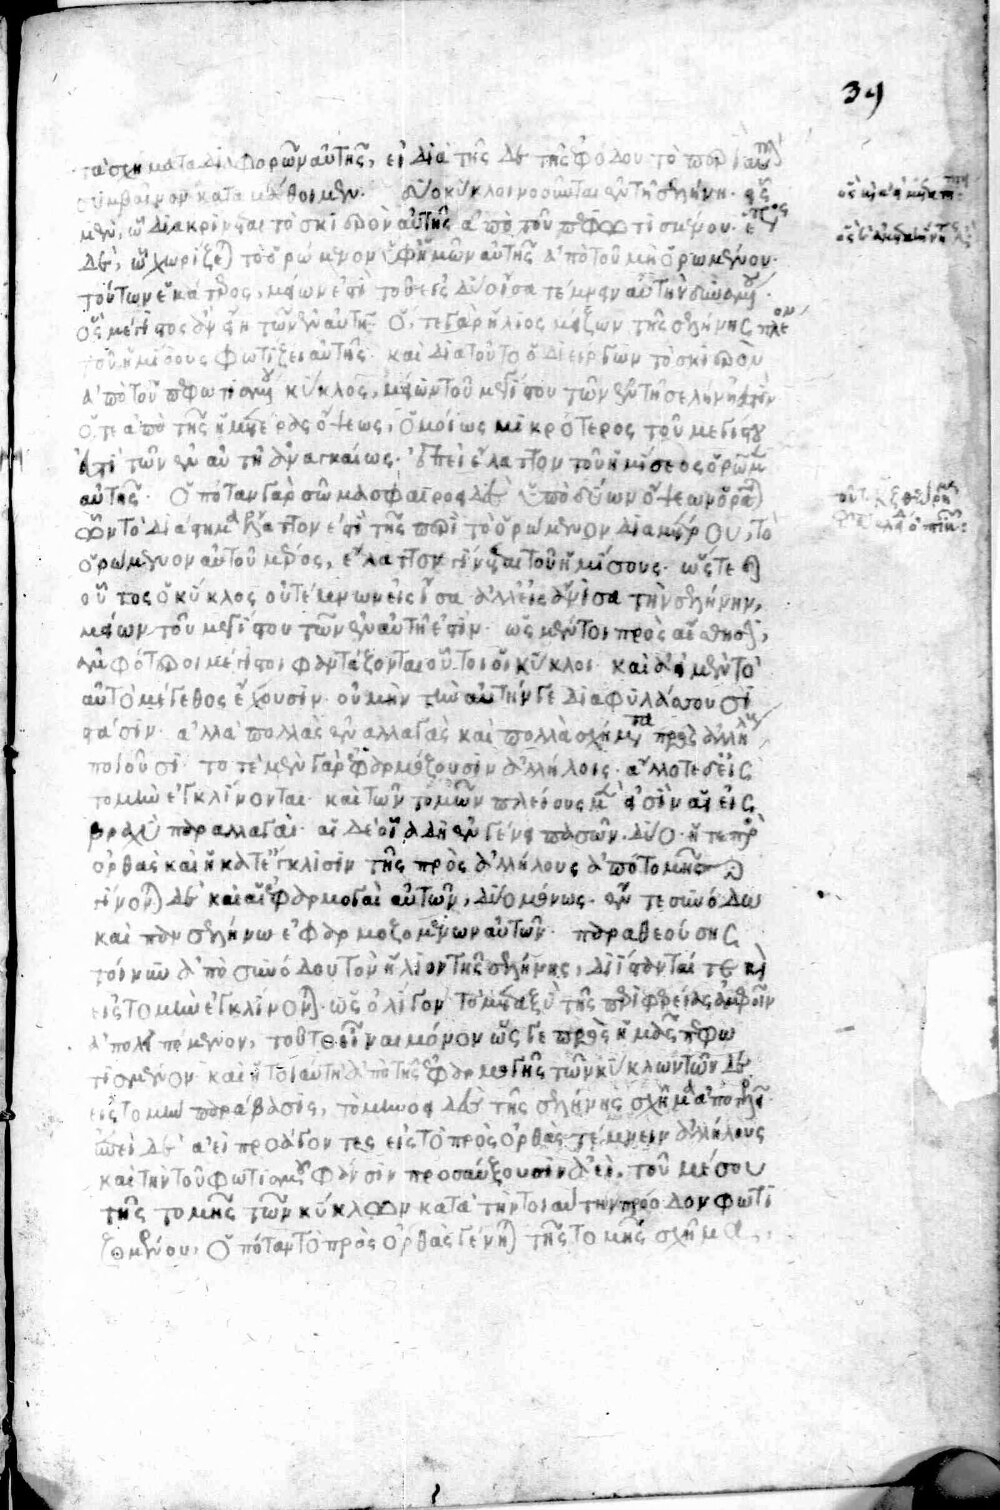 39
τὰ σχήματα διαφορῶν αὐτῆς, εἰ διὰ τῆς δε τῆς ἐφόδου τὸ περὶ
συμβαῖνον καταμάθοιμεν. δύο κύκλοι νοοῦνται ἐν τῇ σελήνῃ. εἷς
μὲν, ᾧ διακρίνεται τὸ σκιερὸν αὐτῆς ἀπὸ τοῦ πεφωτισμένου.
δὲ, ᾧ χωρίζεται τὸ ὁρώμενον ὑφ' ἡμῶν αὐτῆς ἀπὸ τοῦ μὴ ὁρωμένου.
τούτων ἑκάτερος, μείων ἐστὶ τοῦ εἰς δύο ἴσα τέμνειν αὐτὴν δυναμένου.
ὃς μέγιστός ἐστι τῶν ἐν αὐτῇ. ὅ, τε γὰρ ἥλιος μείζων τῆς σελήνης πλέον
τοῦ ἡμίσους φωτίζει αὐτῆς. καὶ διὰ τοῦτο ὁ διείργων τὸ σκιερὸν
ἀπὸ τοῦ πεφωτισμένου κύκλος, μείων τοῦ μεγίστου τῶν ἐν τῇ σελήνῃ ἐστίν
ὅ τε ἀπὸ τῆς ἡμετέρας ὄψεως, ὁμοίως μικρότερος τοῦ μεγίστου
ἐστὶ τῶν ἐν αὐτῇ ἀναγκαίως. ἐπεὶ ἔλαττον τοῦ ἡμίσεος ὁρῶμεν
αὐτῆς. ὁπόταν γὰρ σῶμα σφαιροειδὲς ὑπὸ δύων ὄψεων ὁρᾶται
ὧν τὸ διάστημα ἔλαττον ἐστὶ τῆς περὶ τὸ ὁρώμενον διαμέτρου, τὸ
ὁρώμενον αὐτοῦ μέρος, ἔλαττον γίνεται τοῦ ἡμίσους. ὥστε καὶ
οὗτος ὁ κύκλος οὐ τέμνων εἰς ἴσα ἀλλ' εἰς ἄνισα τὴν σελήνην,
μείων τοῦ μεγίστου τῶν ἐν αὐτῇ ἐστίν. ὡς μέντοι πρὸς αἴσθησιν,
ἀμφότεροι μέγιστοι φαντάζονται οὗτοι οἱ κύκλοι. καὶ ἀεὶ μὲν τὸ
αὐτὸ μέγεθος ἔχουσιν. οὐ μὴν τὴν αὐτήν γε διαφυλάττουσι
στάσιν. ἀλλὰ πολλὰς ἐναλλαγὰς καὶ πολλὰ σχήματα πρὸς ἀλλήλους
ποιοῦσι. τοτὲ μὲν γὰρ ἐφαρμόζουσιν ἀλλήλοις. ἄλλοτε δ' εἰς
τομὴν ἐγκλίνονται. καὶ τῶν τομῶν πλείους μὲν εἰσὶν αἱ εἰς
βραχὺ παραλλαγαί. αἱ δὲ ὡσανεὶ γένη πασῶν δύο. ἥ τε πρὸς
ὀρθὰς καὶ ἡ κατ' ἔγκλισιν τῆς πρὸς ἀλλήλους ἀποτομῆς.
γίνονται δὲ καὶ αἱ ἐφαρμογαὶ αὐτῶν, δυομένως. ἐν τε συνόδῳ
καὶ πανσελήνῳ ἐφαρμοζομένων αὐτῶν. παραθεούσης
τοίνυν ἀπὸ συνόδου τὸν ἥλιον τῆς σελήνης, διίστανταί τε καὶ
εἰς τομὴν ἐγκλίνονται. ὡς ὀλίγον τὸ μεταξὺ τῆς περιφερείας ἀμφοῖν
ἀπολειπόμενον, τοῦτο εἶναι μόνον ὥς γε πρὸς ἡμᾶς πεφω
τισμένον. καὶ ἡ τοιαύτη ἀπὸ τῆς ἐφαρμογῆς τῶν κύκλων τῶνδε
εἰς τομὴν παράβασις, τὸ μηνοειδὲς τῆς σελήνης σχῆμα ἀποτελεῖ.
ἐπεὶ δὲ ἀεὶ προάγοντες εἰς τὸ πρὸς ὀρθὰς τέμνειν ἀλλήλους
καὶ τὴν τοῦ φωτισμοῦ φάνσιν προσαύξουσιν ἀεὶ, τοῦ μέσου
τῆς τομῆς τῶν κύκλων κατὰ τὴν τοιαύτην πρόοδον φωτι
ζομένου. ὁπόταν τὸ πρὸς ὀρθὰς γένηται τῆς τομῆς σχῆμα.